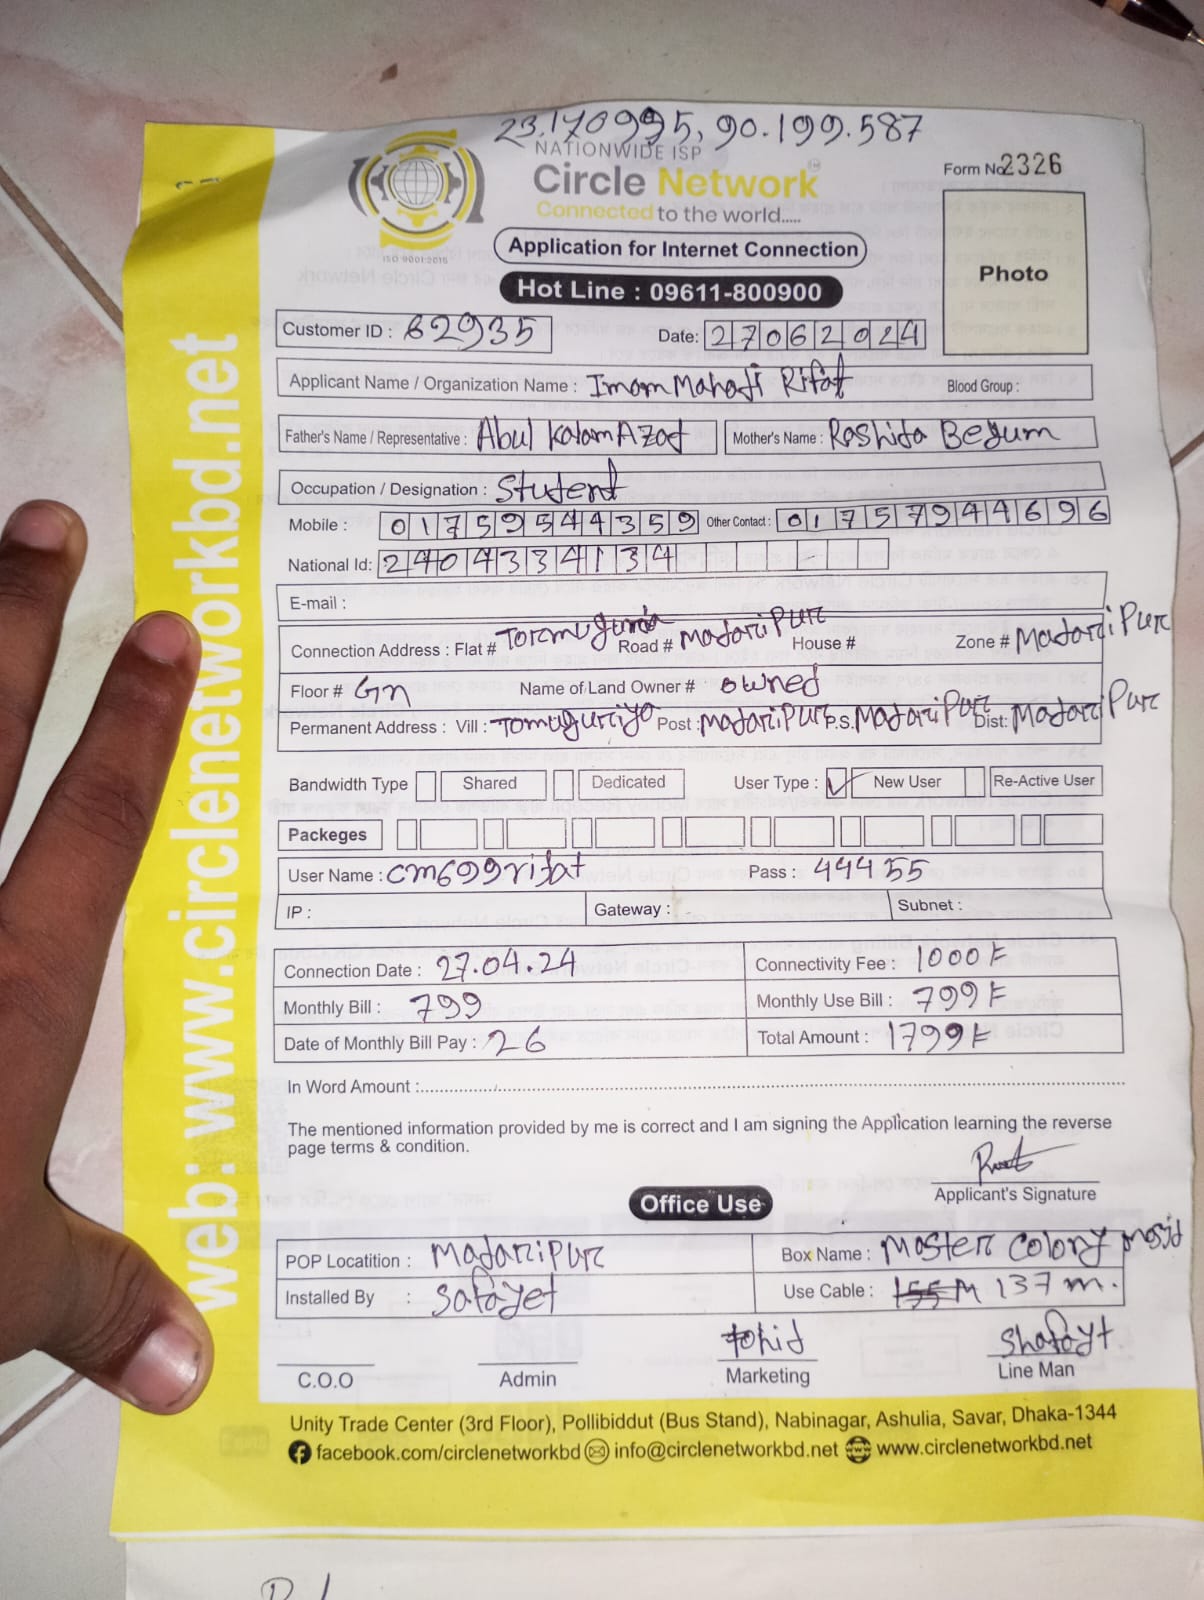 23.170995, 90.199.587
NATIONWIDE ISP
Circle Network
Connected to the world.....
ISO 9001:2015
Form No 2326
Photo
Application for Internet Connection
Hot Line : 09611-800900
Customer ID : 62935 Date: 27062024
Applicant Name / Organization Name : Imam Mahadi Rifat Blood Group :
Father's Name / Representative : Abul Kalam Azad Mother's Name : Rashida Begum
Occupation / Designation : Student
Mobile : 01759544359 Other Contact : 01757944696
National Id: 2404334134
E-mail :
Connection Address : Flat # Road # MadariPur House # Zone # MadariPur
Floor # Gn Name of Land Owner # owned
Permanent Address : Vill : Post : MadariPur P.S. MadariPur Dist: MadariPur
Bandwidth Type Shared Dedicated User Type : ✓ New User Re-Active User
Packeges
User Name : cm699rifat Pass : 44455
IP : Gateway : Subnet :
Connection Date : 27.04.24 Connectivity Fee : 1000
Monthly Bill : 799 Monthly Use Bill : 799
Date of Monthly Bill Pay : 26 Total Amount : 1799
In Word Amount :
The mentioned information provided by me is correct and I am signing the Application learning the reverse
page terms & condition.
Applicant's Signature
Office Use
POP Locatition : MadariPur Box Name : Master Colony mosjid
Installed By : Safayet Use Cable : 155M 137 m.
tohid Shafayt
C.O.O Admin Marketing Line Man
Unity Trade Center (3rd Floor), Pollibiddut (Bus Stand), Nabinagar, Ashulia, Savar, Dhaka-1344
facebook.com/circlenetworkbd info@circlenetworkbd.net www.circlenetworkbd.net
web: www.circlenetworkbd.net